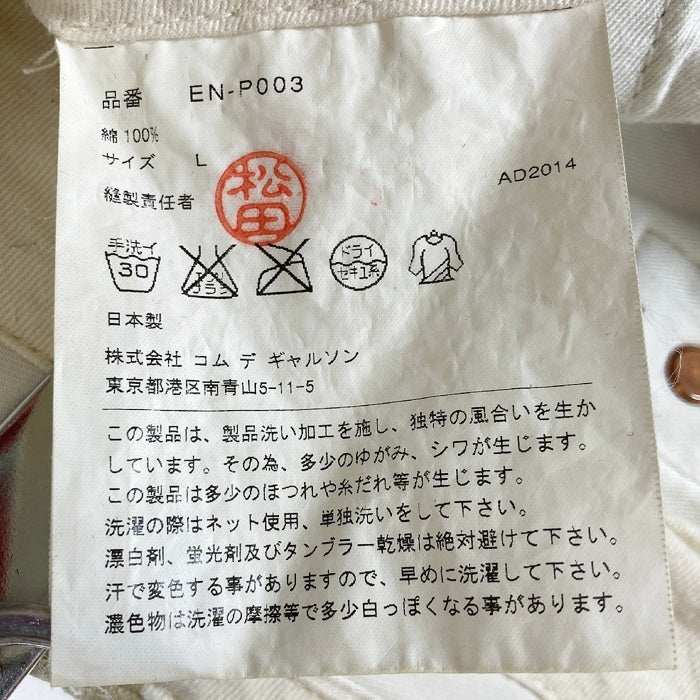 品番 EN-P003
綿100%
サイズ L
AD2014
縫製責任者 松田
手洗イ 30
ドライ
セキユ系
日本製
株式会社 コム デ ギャルソン
東京都港区南青山5-11-5
この製品は、製品洗い加工を施し、独特の風合いを生か
しています。その為、多少のゆがみ、シワが生じます。
この製品は多少のほつれや糸だれ等が生じます。
洗濯の際はネット使用、単独洗いをして下さい。
漂白剤、蛍光剤及びタンブラー乾燥は絶対避けて下さい。
汗で変色する事がありますので、早めに洗濯して下さい。
濃色物は洗濯の摩擦等で多少白っぽくなる事があります。